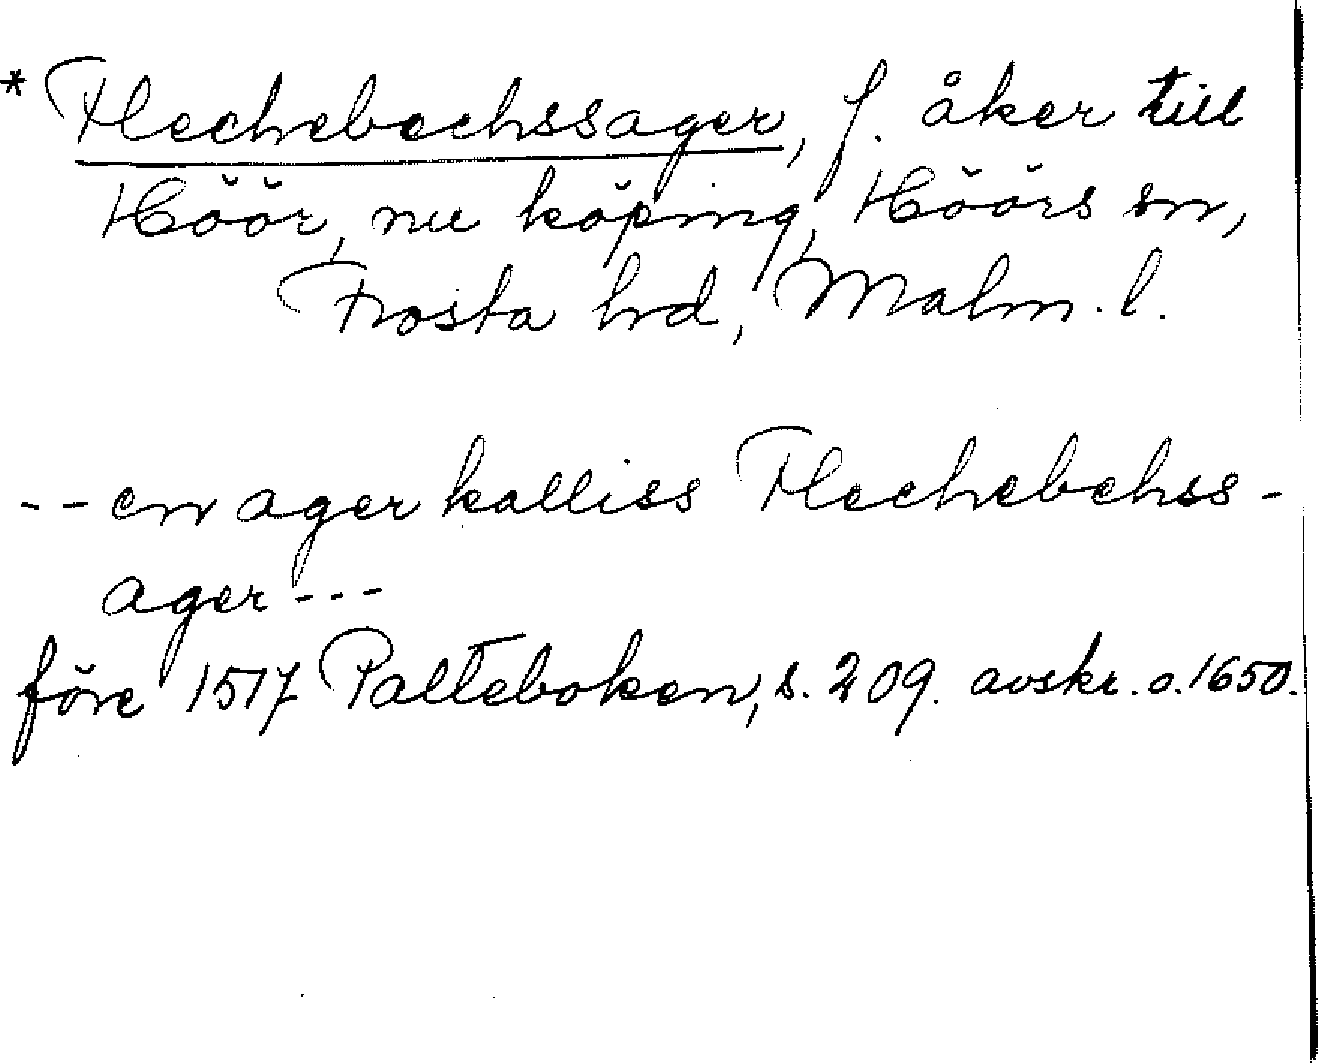 * Flechebechssager, f. åker till
Höör, nu köping, Höörs sn,
Frosta hrd, Malm. l.
-- en ager kalliss Flechebchss-
ager ---
före 1517 Palteboken, s. 209. avskr. o. 1650.